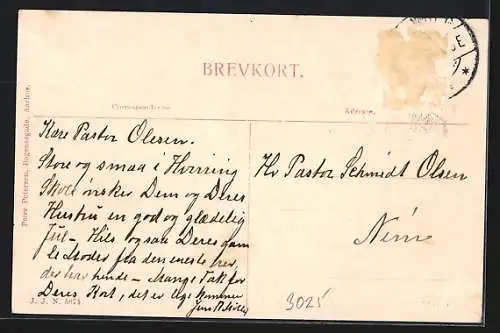 BREVKORT.
Correspondance.
Adresse.
Peter Petersen, Bogmarsgade, Aarhus.
Kære Pastor Olesen.
Store og smaa i Hørning
Skole ønsker Dem og Deres
Hustru en god og glædelig
Jul – Hils ogsaa Deres gam
le Moder fra den eneste her,
der har kende – Mange Tak for
Deres Kort, det er
J. J. N. 5071
Hr Pastor Schmidt Olsen
3025